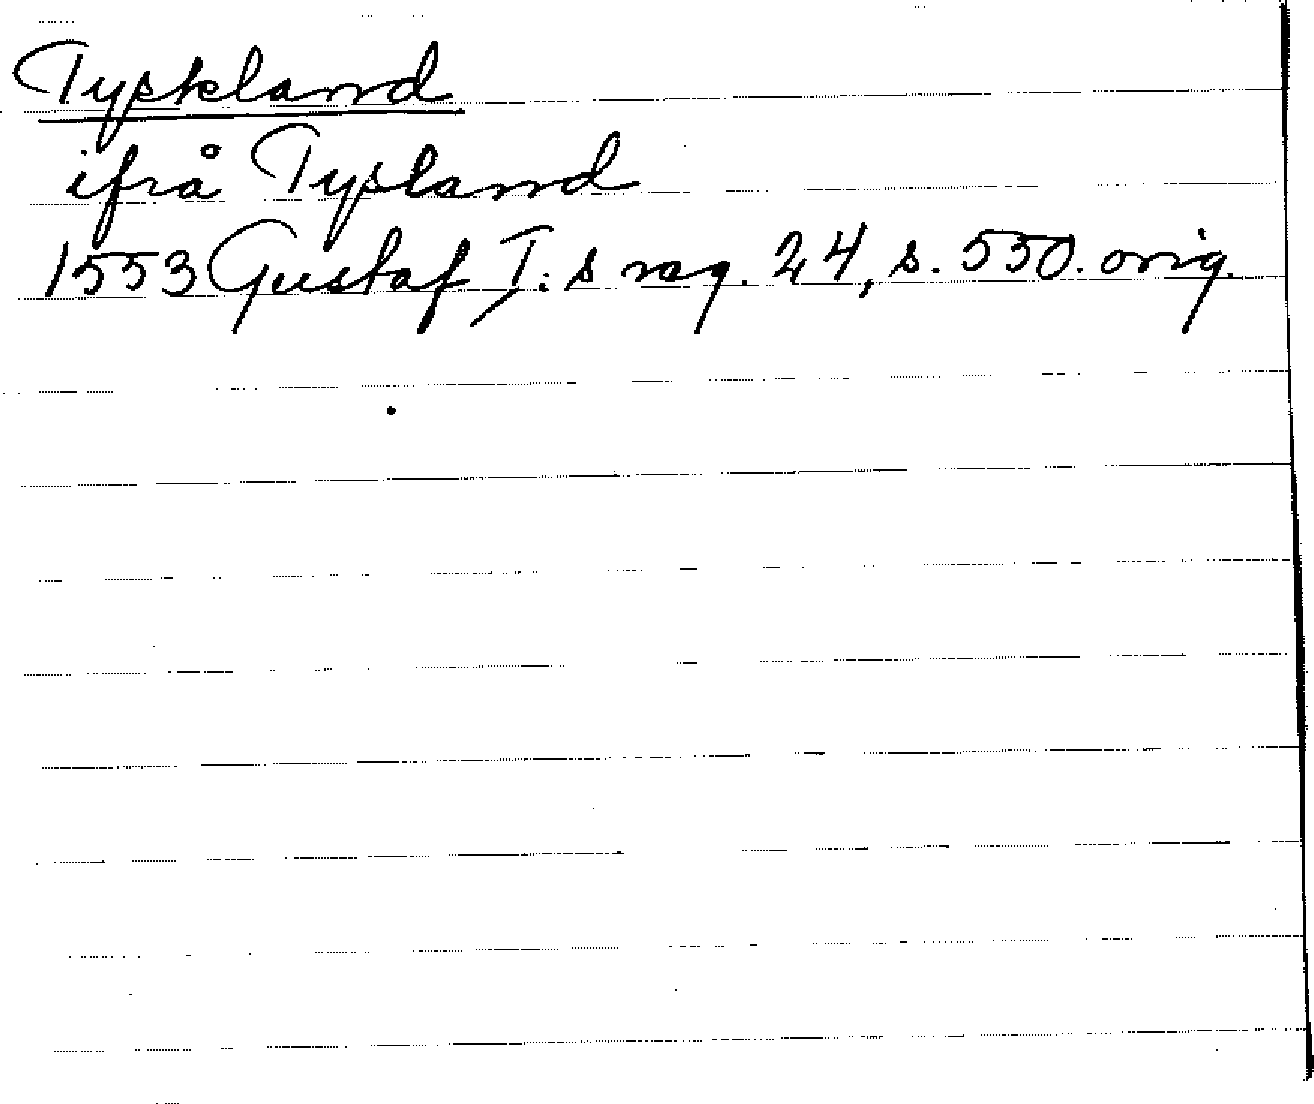 Tyskland
ifrå Tysland
1553 Gustaf I:s reg. 24, s. 550. orig.